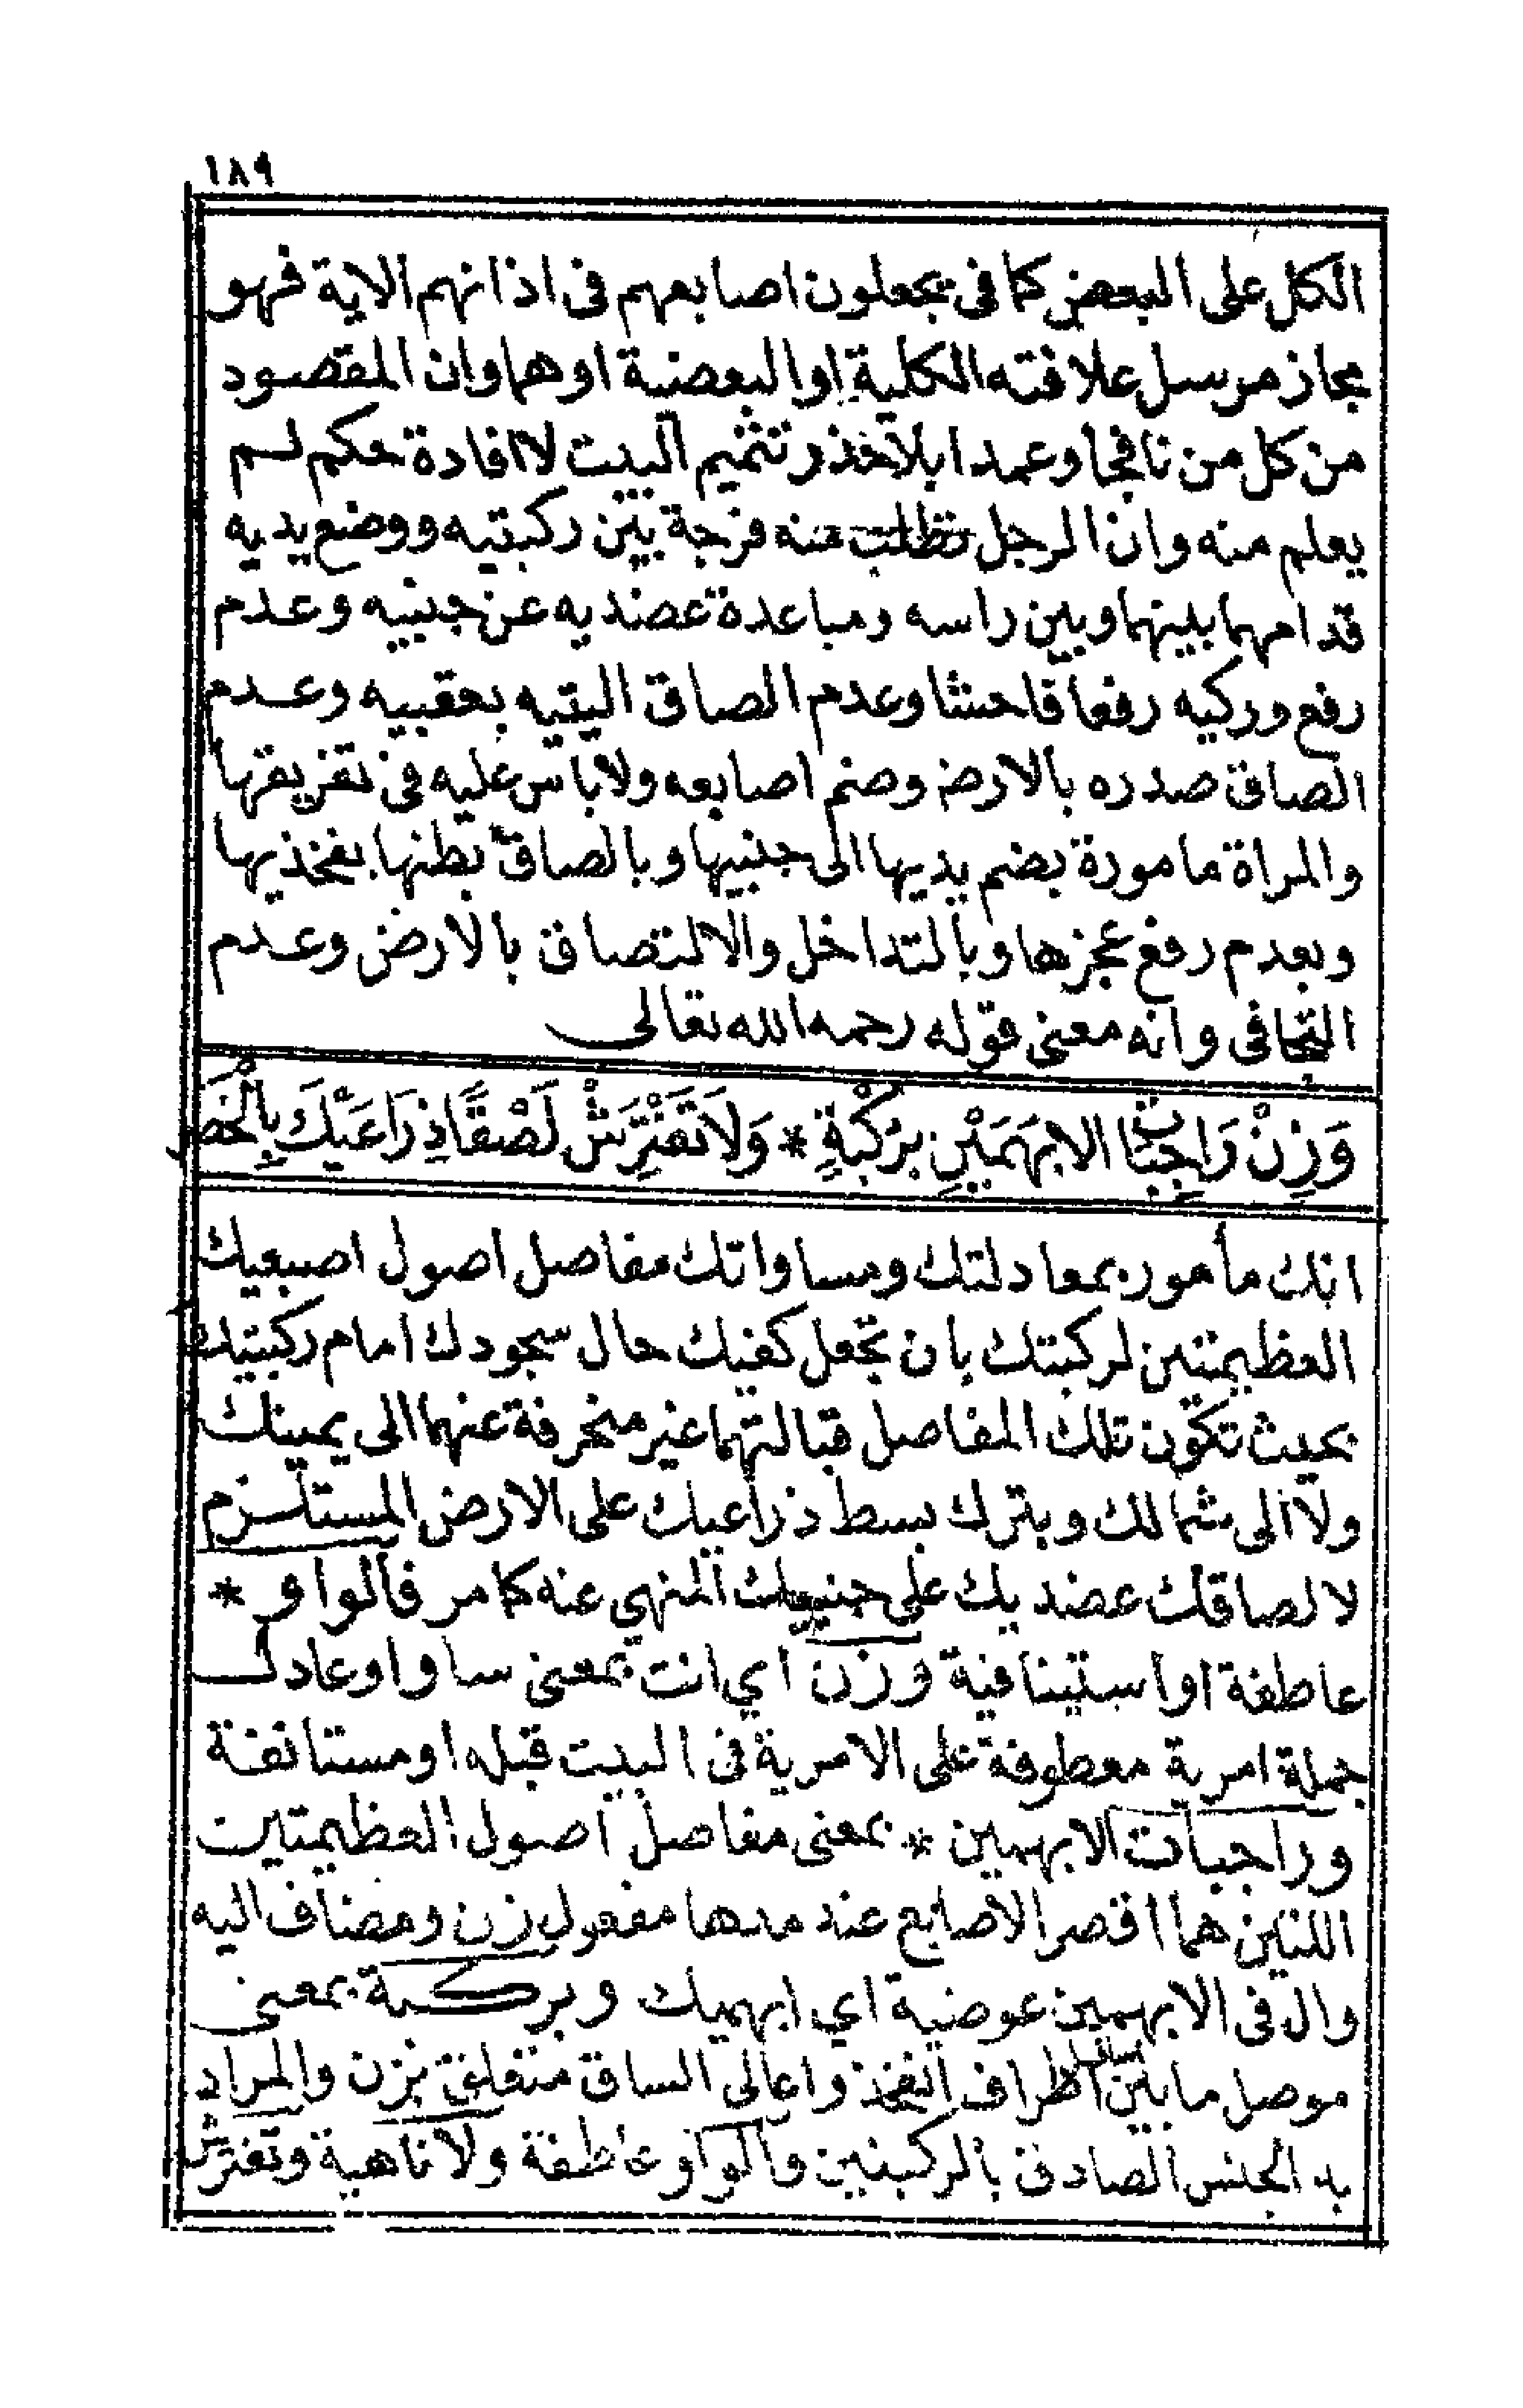 ١٨٩
الكل على البعض كما فى يجعلون اصابعهم فى اذانهم الاية فهو
مجاز مرسل علاقته الكلية او البعضية او هما وان المقصود
من كل من نافجا وعمدا بلا عذر تتميم البيت لا افادة حكم لم
يعلم منه وان الرجل تطلب منه فرجة بين ركبتيه ووضع يديه
قدامهما بينهما وبين راسه ومباعدة عضديه عن جنبيه وعدم
رفع وركيه رفعا فاحشا وعدم الصاق اليتيه بعقبيه وعدم
الصاق صدره بالارض وضم اصابعه ولا باس عليه فى تفريقها
والمراة مامورة بضم يديها الى جنبيها وبالصاق بطنها بفخذيها
وبعدم رفع عجزها وبالتداخل والالتصاق بالارض وعدم
التجافى وانه معنى قوله رحمه الله تعالى
وَزِنْ رَاجِبَاتِ الابهَمَيْنِ بِرُكْبَةٍ * وَلَا تَفْتَرِشْ لَصْقًا ذِرَاعَيْكَ بِالْخَصْرِ
انك مأمور بمعادلتك ومساواتك مفاصل اصول اصبعيك
العظيمتين لركبتك بان تجعل كفيك حال سجودك امام ركبتيك
بحيث تكون تلك المفاصل قبالتهما غير منحرفة عنهما الى يمينك
ولا الى شمالك وبترك بسط ذراعيك على الارض المستلزم
لالصاقك عضديك على جنبيك المنهي عنه كما مر فالواو *
عاطفة او استينافية وزن اي انت بمعنى ساو او عادل
جملة امرية معطوفة على الامرية فى البيت قبله او مستانفة
وراجبات الابهمين * بمعنى مفاصل اصول العظيمتين
اللتين هما اقصر الاصابع عند مدها مفعول زن ومضاف اليه
وال فى الابهمين عوضية اي ابهميك وبركبة بمعنى
موصل ما بين اسافل اطراف الفخذ واعالى الساق متعلق بزن والمراد
به الجنس الصادق بالركبتين والواو عاطفة ولا ناهية وتفترش